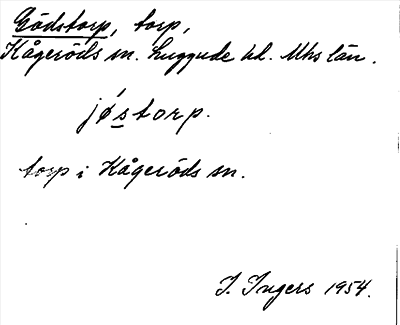 Gödstorp, torp,
Kågeröds sn. Luggude hd. Mhs län.
jǿstorp.
torp i Kågeröds sn.
I. Ingers 1954.